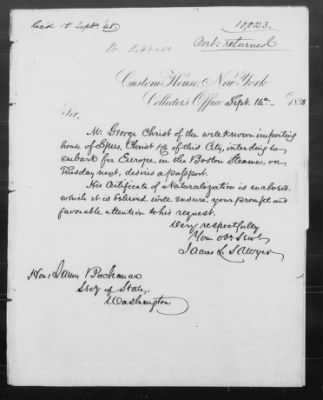 Rec'd 15 Septr. '48
10,823.
Cert: returned
Custom House, New York
Collector's Office, Sept. 14th 1848
Sir,
Mr. George Christ of the well known importing
house of Spies, Christ & Co of this City, intending to
embark for Europe, on the Boston Steamer, on
Tuesday next, desires a passport.
His Certificate of Naturalization is enclosed
which it is believed will ensure your prompt and
favorable attention to his request.
Very respectfully
Your Obt Servt
James L. Sawyer
Hon: James Buchanan
Secy of State,
Washington